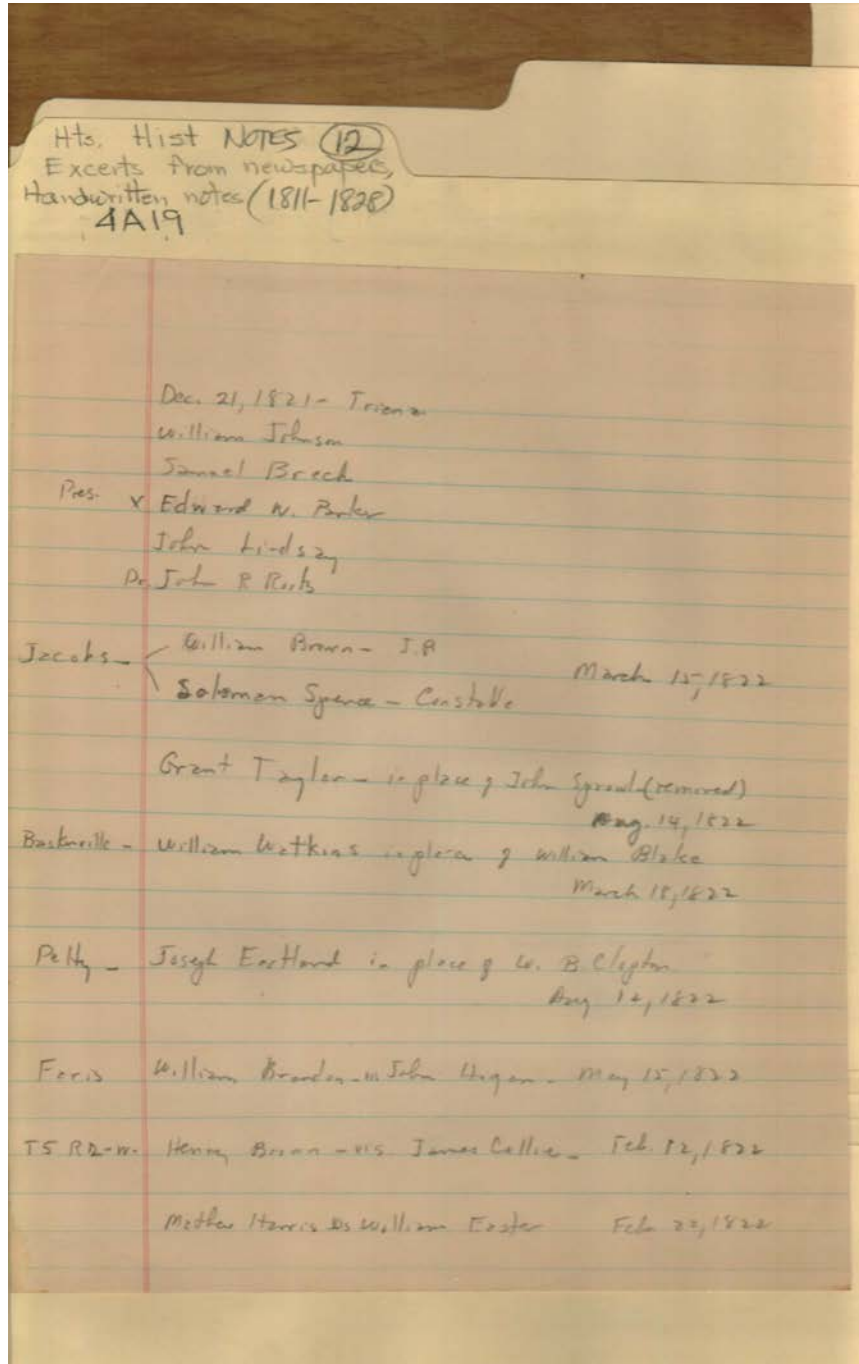 Hts. Hist NOTES (12)
Excerts from newspapers,
Handwritten notes (1811-1828)
4A19
Dec. 21, 1821 - Triana
William Johnson
Samuel Breck
Pres. x Edward W. Parker
John Lindsay
Dr. John R
Jacobs - William Brown - J.P
March 15, 1822
Solomon Spence - Constable
Grant Taylor - in place of John Sprowl (removed)
Aug. 14, 1822
Baskerville - William Watkins in place of William Blake
March 18, 1822
Petty - Joseph Eastland in place of W. B Clopton
Aug 12, 1822
Feris William Brandon - John Hogan - May 15, 1822
T5 R2-W. Henry Brown - vis. James Collier - Feb. 12, 1822
Mathew Harris vs William Easter Feb 22, 1822